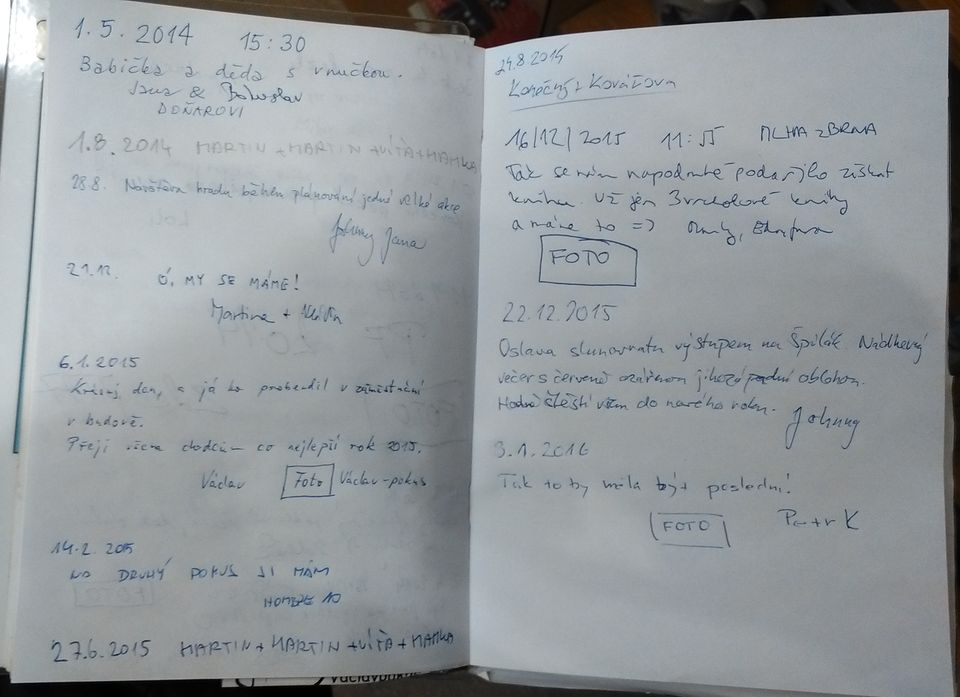 1.5.2014 15:30
Babička a děda s vnučkou.
Jana & Bohuslav
DOŇAROVI
1.8.2014 MARTIN + MARTIN + VÍŤA + MAMKA
28.8. Návštěva hradu během plánování jedné velké akce
Johnny Jana
21.12. Ó, MY SE MÁME!
Martina +
6.1.2015
Krásný den, a já ho proberdil v zaměstnání
v budově.
Přeji všem chodcům co nejlepší rok 2015.
Václav Foto Václav-pokus
14.2. 2015
NA DRUHÝ POKUS JI MÁM
HOMBRE 10
27.6.2015 MARTIN + MARTIN + VÍŤA + MAMKA
24.8.2015
Konečný + Kovářova
16/12/2015 11:55 MLHA z BRNA
Tak se nám napodruhé podařilo získat
knihu. Už jen 3 vrcholové knihy
a máme to =>
FOTO
22.12.2015
Oslava slunovratu výstupem na Špilák Nádherný
večer s červeně ozářenou jihozápadní oblohou.
Hodně štěstí všem do nového roku. Johnny
3.1.2016
Tak to by měla být poslední!
FOTO Petr K